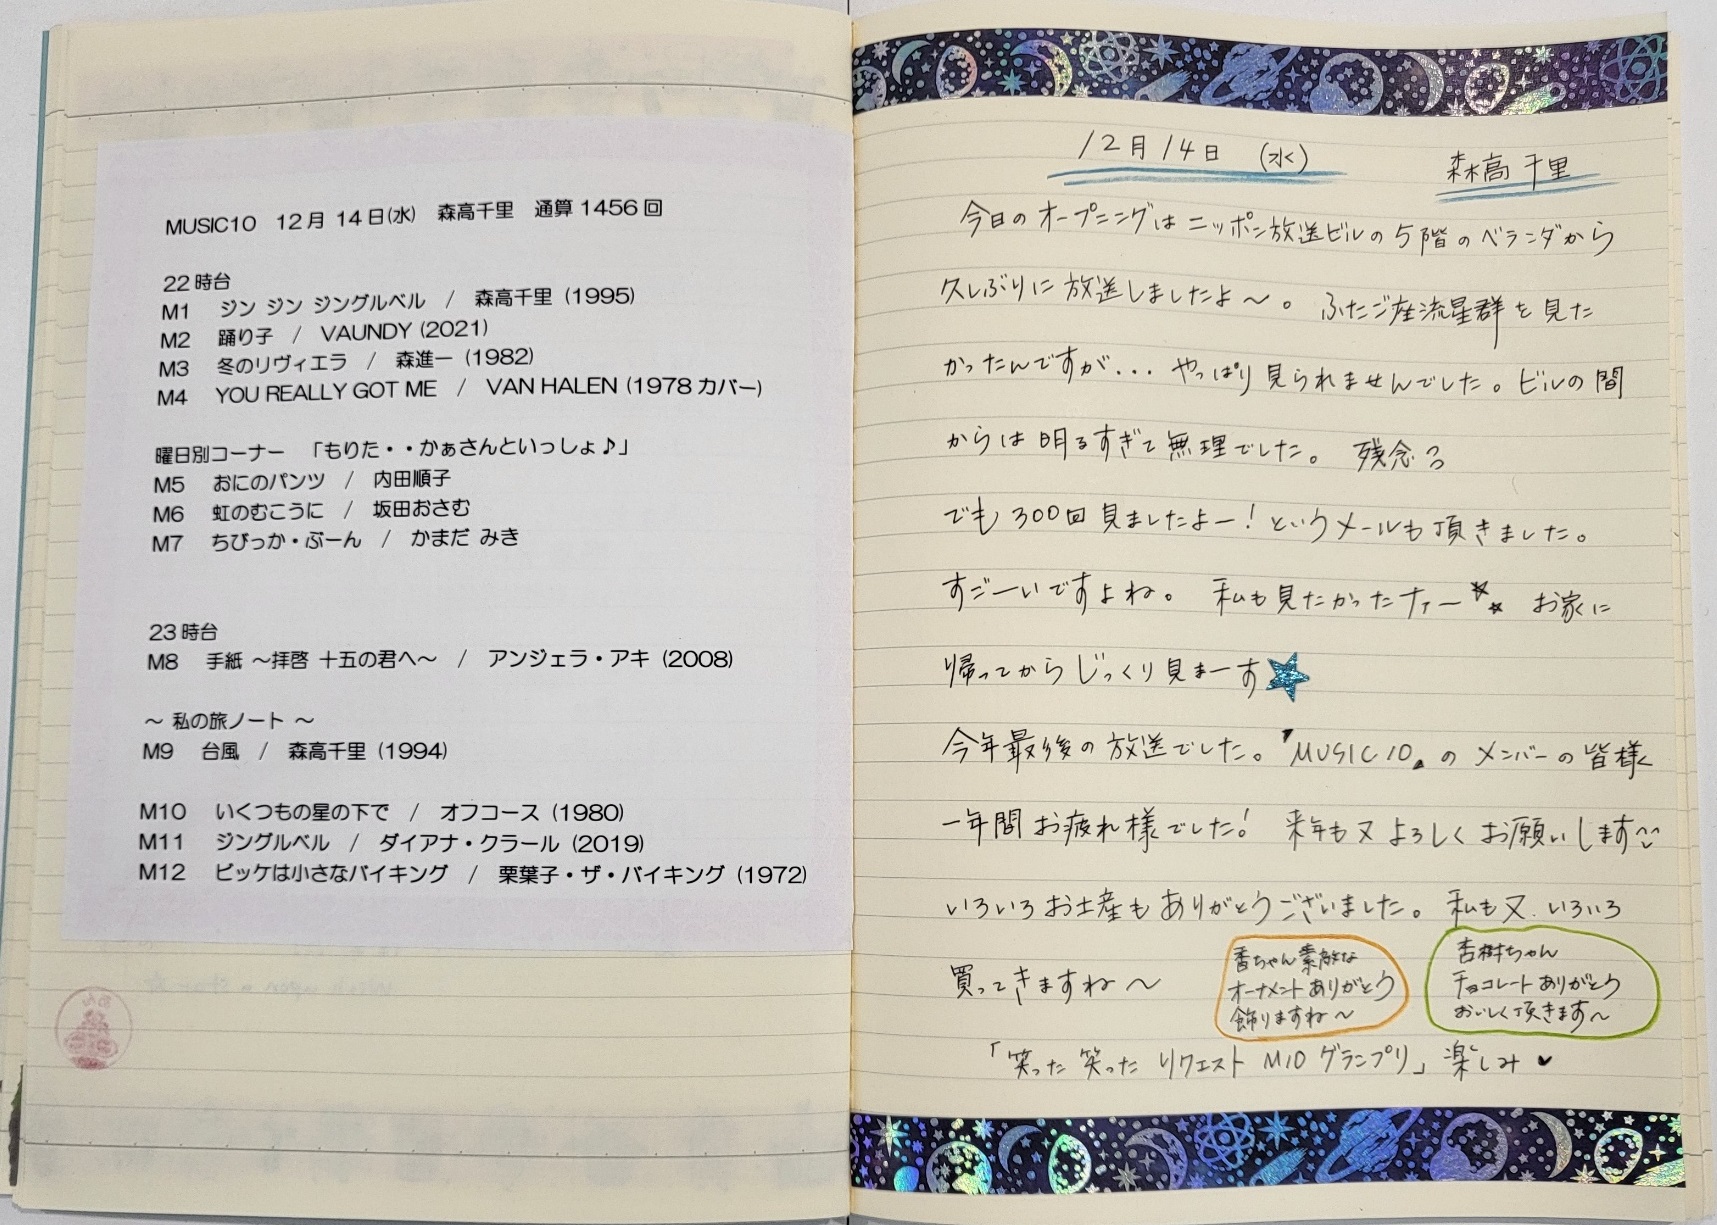 MUSIC10 12月 14日(水) 森高千里 通算1456回
22時台
M1 ジン ジン ジングルベル / 森高千里 (1995)
M2 踊り子 / VAUNDY (2021)
M3 冬のリヴィエラ / 森進一 (1982)
M4 YOU REALLY GOT ME / VAN HALEN (1978カバー)
曜日別コーナー 「もりた・・かぁさんといっしょ♪」
M5 おにのパンツ / 内田順子
M6 虹のむこうに / 坂田おさむ
M7 ちびっか・ぶーん / かまだ みき
23時台
M8 手紙 ～拝啓 十五の君へ～ / アンジェラ・アキ (2008)
～ 私の旅ノート ～
M9 台風 / 森高千里 (1994)
M10 いくつもの星の下で / オフコース (1980)
M11 ジングルベル / ダイアナ・クラール (2019)
M12 ビッケは小さなバイキング / 栗葉子・ザ・バイキング (1972)
12月14日 (水) 森高千里
今日のオープニングはニッポン放送ビルの5階のベランダから
久しぶりに放送しましたよ～。ふたご座流星群を見た
かったんですが... やっぱり見られませんでした。ビルの間
からは明るすぎて無理でした。残念
でも300回見ましたよー!というメールも頂きました。
すごーいですよね。私も見たかったナァー☆☆ お家に
帰ってからじっくり見まーす
今年最後の放送でした。『MUSIC10』のメンバーの皆様
一年間お疲れ様でした! 来年も又よろしくお願いします
いろいろお土産もありがとうございました。私も又、いろいろ
買ってきますね～
香ちゃん素敵な
オーナメントありがとう
飾りますね～
杏樹ちゃん
チョコレートありがとう
おいしく頂きます～
「笑った笑ったリクエストM10グランプリ」楽しみ♥